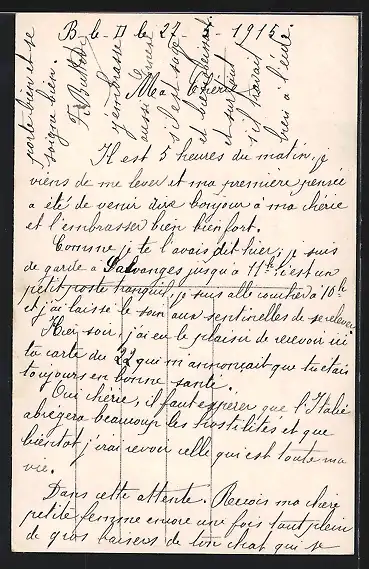 B-le-D le 27 1915
Ma Chérie
Il est 5 heures du matin, je
viens de me lever et ma première pensée
a été de venir dire bonjour à ma chérie
et l'embrasser bien bien fort.
Comme je te l'avais dit hier, je suis
de garde à Salvanges jusqu'à 11h c'est un
petit poste tranquil, je suis allé coucher à 10h
et j'ai laissé le soin aux sentinelles de se relever.
Hier soir, j'ai eu le plaisir de recevoir ici
ta carte du 22 qui m'annonçait que tu étais
toujours en bonne santé.
Oui chérie, il faut espérer que l'Italie
abregera beaucoup les hostilités et que
bientôt j'irai revoir celle qui est toute ma
vie.
Dans cette attente. Reçois ma chère
petite femme encore une fois tout plein
de gros baisers de ton chat qui se
porte bien et se
soigne bien.
J'embrasse
aussi
s'il est sage
et
et surtout
s'il travail
bien à l'école